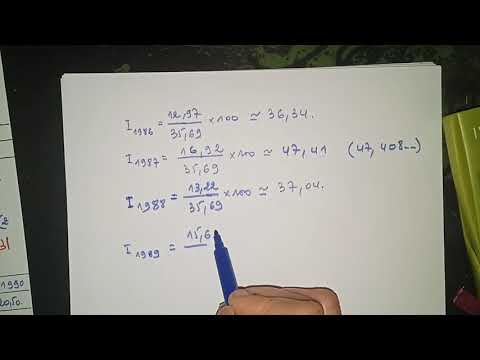 I 1986 = 12,97 / 35,69 × 100 ≃ 36,34.
I 1987 = 16,92 / 35,69 × 100 ≃ 47,41 (47,408--)
I 1988 = 13,22 / 35,69 × 100 ≃ 37,04.
I 1989 = 15,6
1990
20,50.